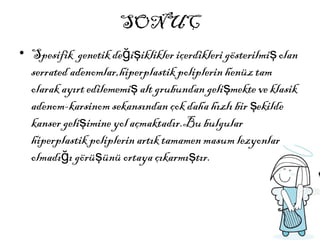 SONUÇ
• Spesifik genetik değişiklikler içerdikleri gösterilmiş olan
serrated adenomlar,hiperplastik poliplerin henüz tam
olarak ayırt edilememiş alt grubundan gelişmekte ve klasik
adenom-karsinom sekansından çok daha hızlı bir şekilde
kanser gelişimine yol açmaktadır.Bu bulgular
hiperplastik poliplerin artık tamamen masum lezyonlar
olmadığı görüşünü ortaya çıkarmıştır.